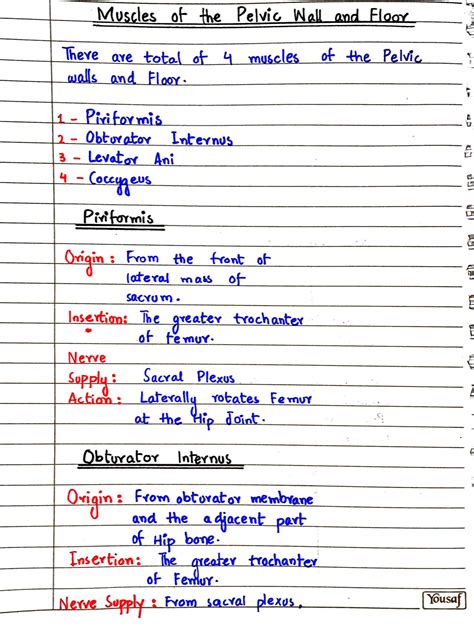 Muscles of the Pelvic Wall and Floor
There are total of 4 muscles of the Pelvic
walls and Floor.
1 - Piriformis
2 - Obturator Internus
3 - Levator Ani
4 - Coccygeus
Piriformis
Origin : From the front of
lateral mass of
sacrum.
Insertion: The greater trochanter
of femur.
Nerve
Supply : Sacral Plexus
Action : Laterally rotates Femur
at the Hip Joint.
Obturator Internus
Origin : From obturator membrane
and the adjacent part
of Hip bone.
Insertion: The greater trochanter
of Femur.
Nerve Supply : From sacral plexus,
Yousaf